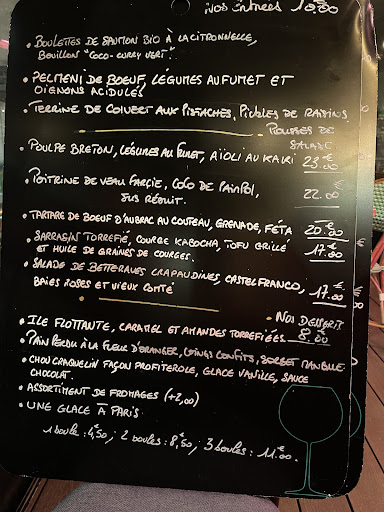 Nos Entrées 10.50
• Boulettes de saumon bio à la citronnelle,
Bouillon "coco-curry vert".
• Pelmeni de boeuf, légumes au fumet et
oignons acidulés
• Terrine de colvert aux pistaches, pickles de raisins
• Pousses de
salade
• Poulpe breton, légumes au fumet, aïoli au kaki 23.€00
• Poitrine de veau farçie, coco de paimpol,
jus réduit. 22.€00
• Tartare de boeuf d'aubrac au couteau, grenade, féta 20.€50
• Sarrasin torrefié, courge kabocha, tofu grillé
et huile de graines de courges. 17.€00
• Salade de betteraves crapaudines, castelfranco,
baies roses et vieux comté 17.€00
• Nos desserts
8,€50
• Ile flottante, caramel et amandes torrefiées
• Pain perdu à la fleur d'oranger, coings confits, sorbet
• Chou craquelin façon profiterole, glace vanille, sauce
chocolat.
• Assortiment de fromages (+2,00)
• Une glace à Paris.
1 boule : 4,€50 ; 2 boules : 8,€50 ; 3 boules : 11.€00.